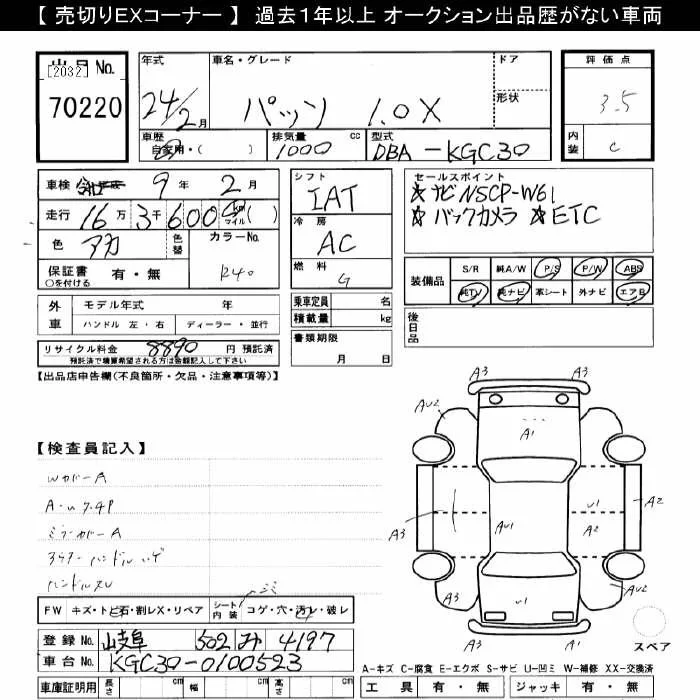 【 売切りEXコーナー 】 過去1年以上 オークション出品歴がない車両
出品No.
[2032]
70220
年式
24/2月
車名・グレード
パッソ 1.0X
ドア
形状
評価点
3.5
内装
C
車歴
自家用・( )
排気量 cc
1000
型式
DBA-KGC30
車検
9年 2月
走行
16万 3千 600 km マイル ( )
色
アカ
色替
カラーNo.
R40
保証書 有・無
○を付ける
シフト
IAT
冷房
AC
燃料
G
セールスポイント
☆ナビNSCP-W61
☆バックカメラ ☆ETC
装備品
S/R 純A/W P/S P/W ABS
純TV 純ナビ 革シート 外ナビ エアB
外車
モデル年式 年
ハンドル 左・右 ディーラー・並行
乗車定員 名
積載量 kg
後日品
リサイクル料金 8890 円 預託済
預託済で積算希望される方は金額記入して下さい
書類期限
月 日
【出品店申告欄(不良箇所・欠品・注意事項等)】
【検査員記入】
WカバーA
ミラーカバーA
ハンドルスレ
A3 A3
AU2
A1
U1
A3 AU1 A2 A2
U1 AU2
A3 A3
スペア
FW キズ・トビ石・割レX・リペア
シート内装 コゲ・穴・汚レ・破レ
登録No. 岐阜 502 み 4197
車台No. KGC30-0100523
A-キズ C-腐食 E-エクボ S-サビ U-凹ミ W-補修 XX-交換済ミ
車庫証明用 長さ cm 幅 cm 高さ cm
工具 有・無 ジャッキ 有・無